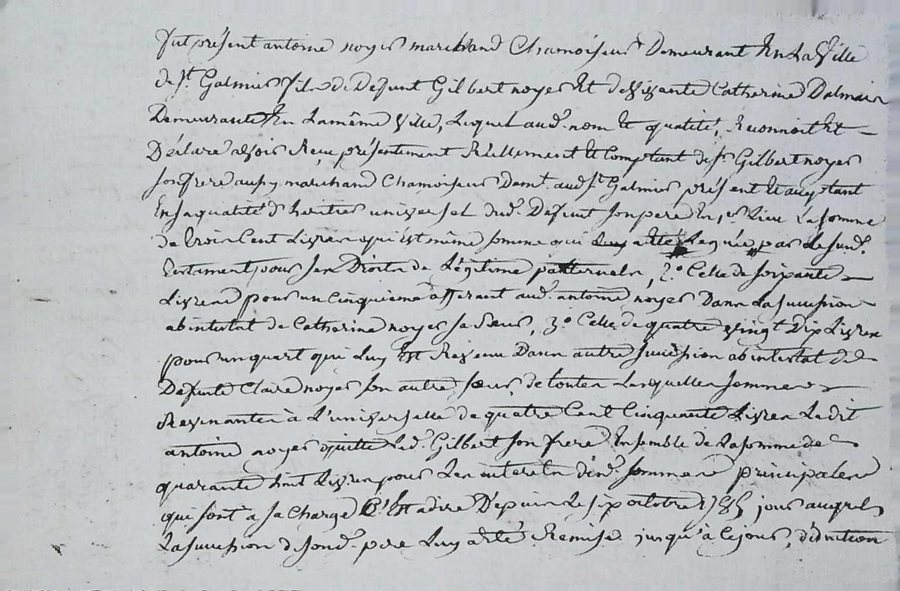 fut présent antoine noyer marchand Chamoiseur Demeurant En La Ville
de st. Galmier fils de Defunt Gilbert noyer Et de Vivante Catherine Dalmais
Demeurante En La même Ville, Lequel aud. nom Et qualité, Reconnoit Et
Déclare avoir Reçu présentement Réellement Et Comptant de sr Gilbert noyer
son frere aussy marchand Chamoiseur Demt. aud. st Galmier présent Et acceptant
En sa qualité d'heritier universel dud. Defunt son pere En 1er Lieu La somme
de trois Cent Livres qui Est même somme qui Luy a Eté Leguée par Le susd.
testament pour ses Droits de Légitime paternels, 2o. Celle de soixante
Livres pour un Cinquieme afferant aud. antoine noyer Dans La succession
abintestat de Catherine noyer sa sœur, 3o Celle de quatre vingt Dix Livres
pour un quart qui Luy Est Revenu Dans autre succession abintestat de
Defunte Claire noyer son autre sœur, de toutes Lesquelles sommes
Revenantes à L'universelle de quatre Cent Cinquante Livres Le dit
antoine noyer quitte Led. Gilbert son frere, Ensemble de La somme de
quarante huit Livres pour Les interets desd. sommes principales
qui sont a sa Charge C'Est adire Depuis Le six octobre 1785 jour auquel
La succession de sond. pere Luy a été Remise jusqu'à Ce jour, déduction